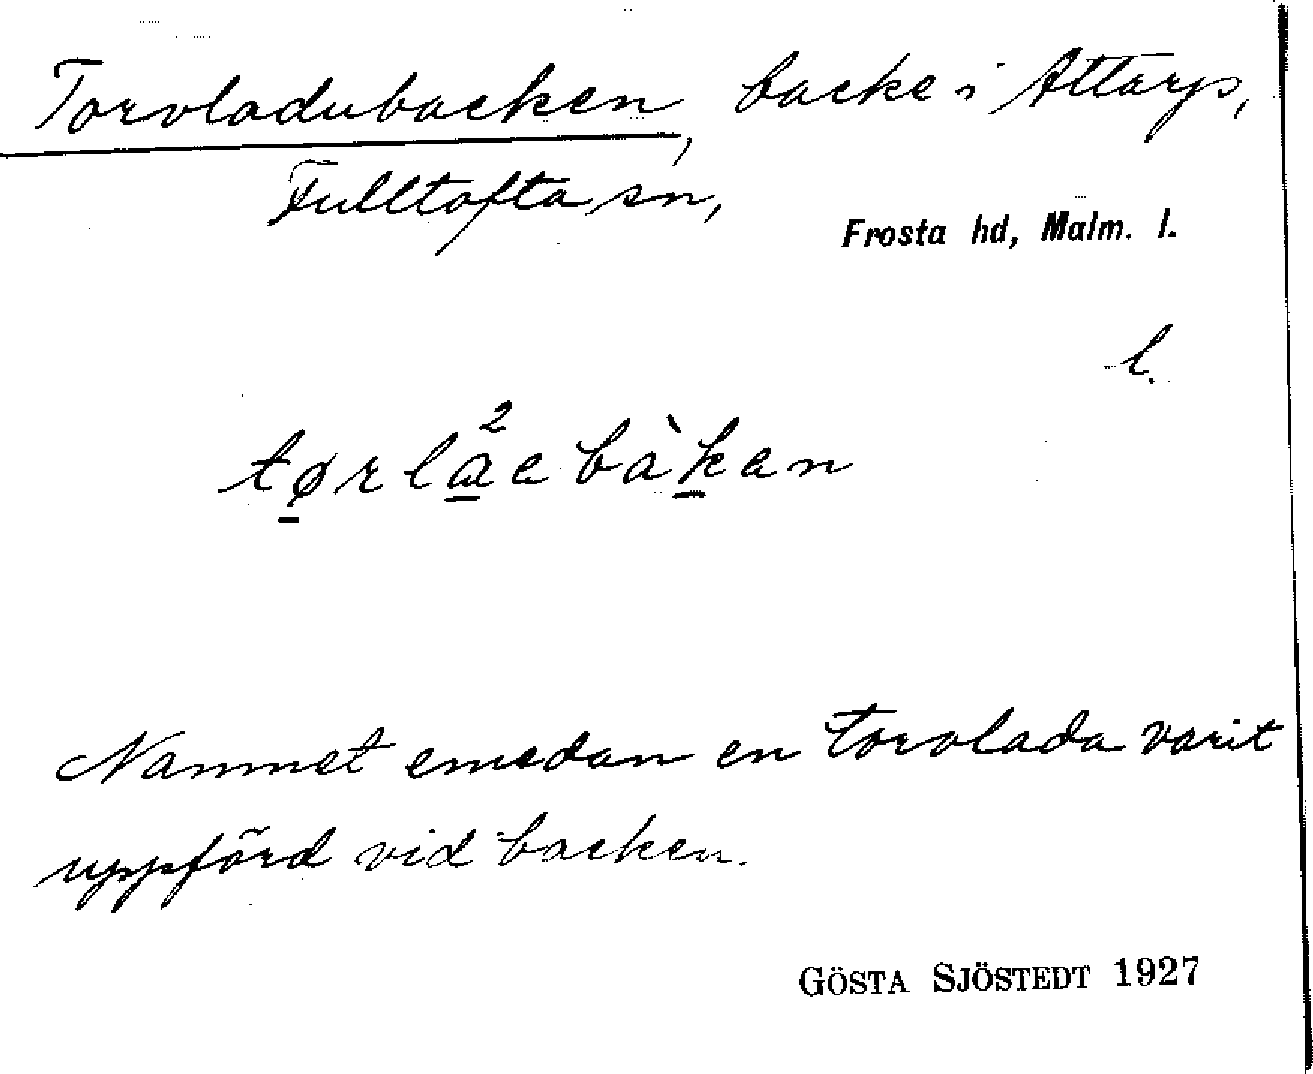 Torvladubacken, backe i Attarp,
Fulltofta sn,
Frosta hd, Malm. l.
l.
tørla²e bàkan
Namnet emedan en torvlada varit
uppförd vid backen.
GÖSTA SJÖSTEDT 1927